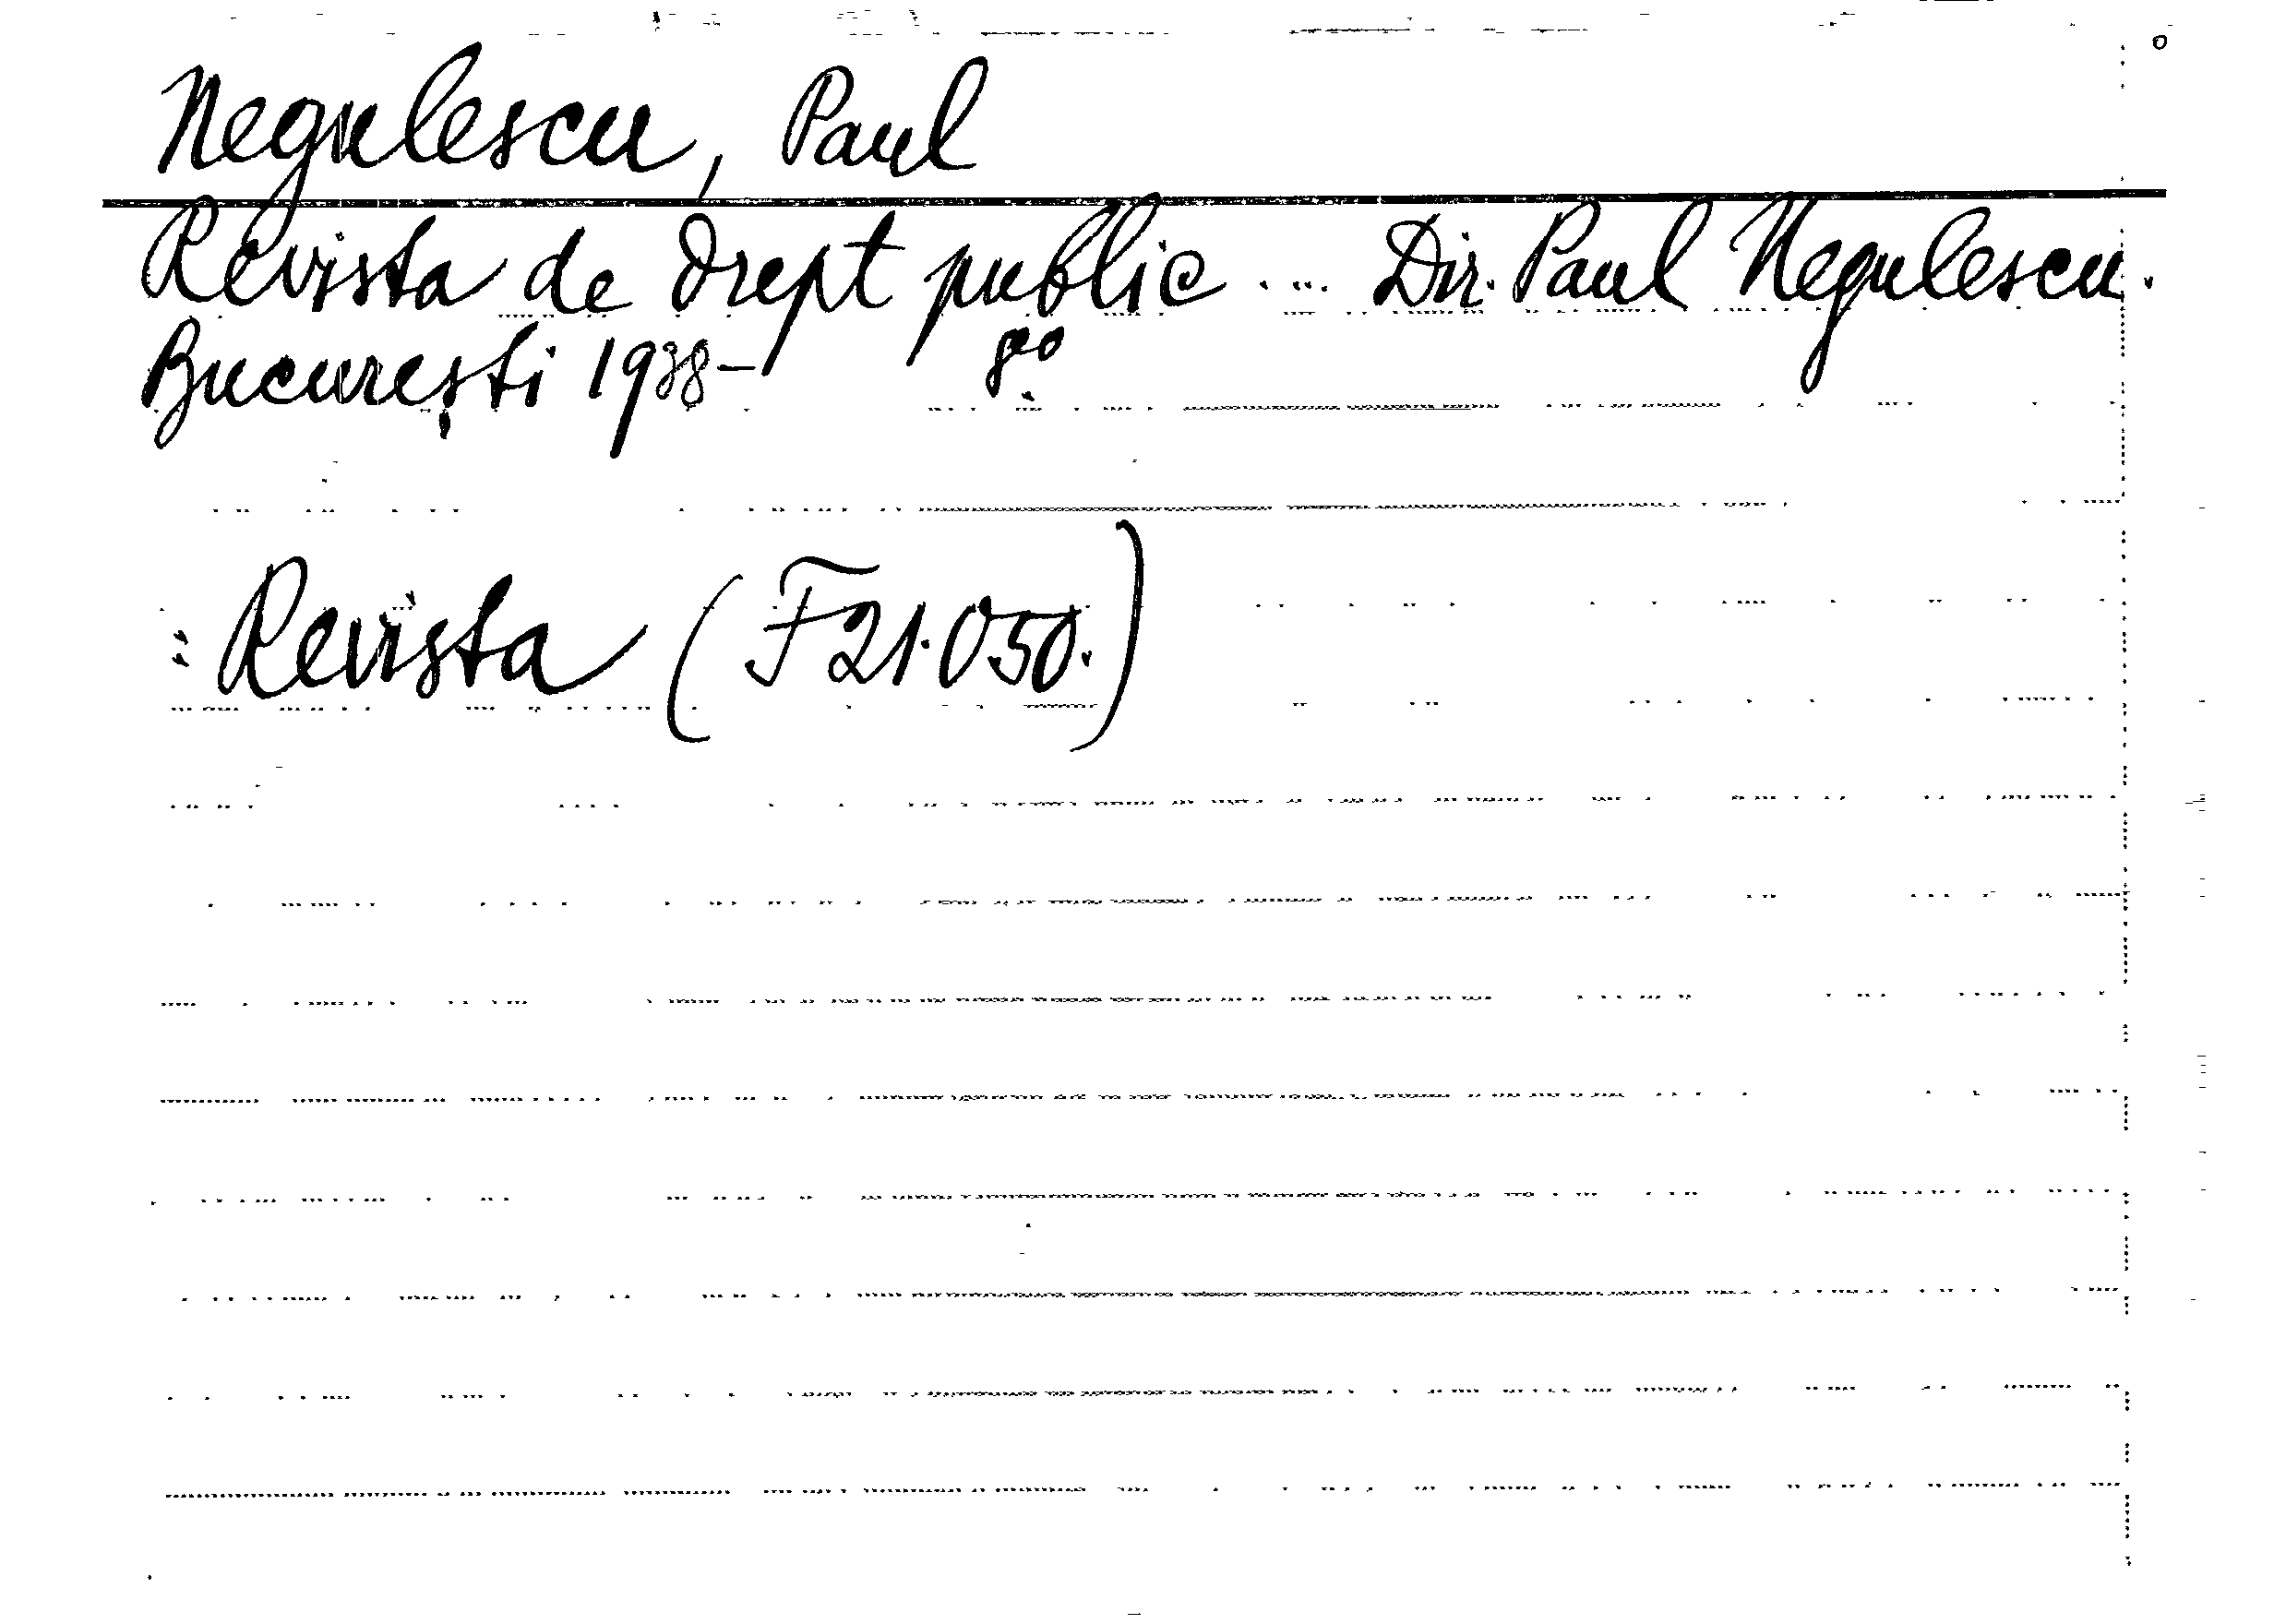 Negulescu, Paul
Revista de drept public .... Dir. Paul Negulescu.
București 1938- 8°
: Revista (F 21.050.)